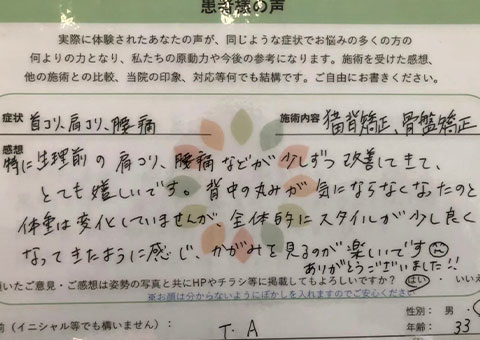 患者様の声
実際に体験されたあなたの声が、同じような症状でお悩みの多くの方の
何よりの力となり、私たちの原動力や今後の参考になります。施術を受けた感想、
他の施術との比較、当院の印象、対応等何でも結構です。ご自由にお書きください。
症状 首コリ、肩コリ、腰痛 施術内容 猫背矯正、骨盤矯正
感想
特に生理前の肩コリ、腰痛などが少しずつ改善してきて、
とても嬉しいです。背中の丸みが気にならなくなったのと
体重は変化していませんが、全体的にスタイルが少し良く
なってきたように感じ、かがみを見るのが楽しいです
ありがとうございました!!
いたご意見・ご感想は姿勢の写真と共にHPやチラシ等に掲載してもよろしいですか? はい・いいえ
※お顔は分からないようにぼかしを入れますのでご安心ください
前(イニシャル等でも構いません): T.A
性別: 男・
年齢: 33